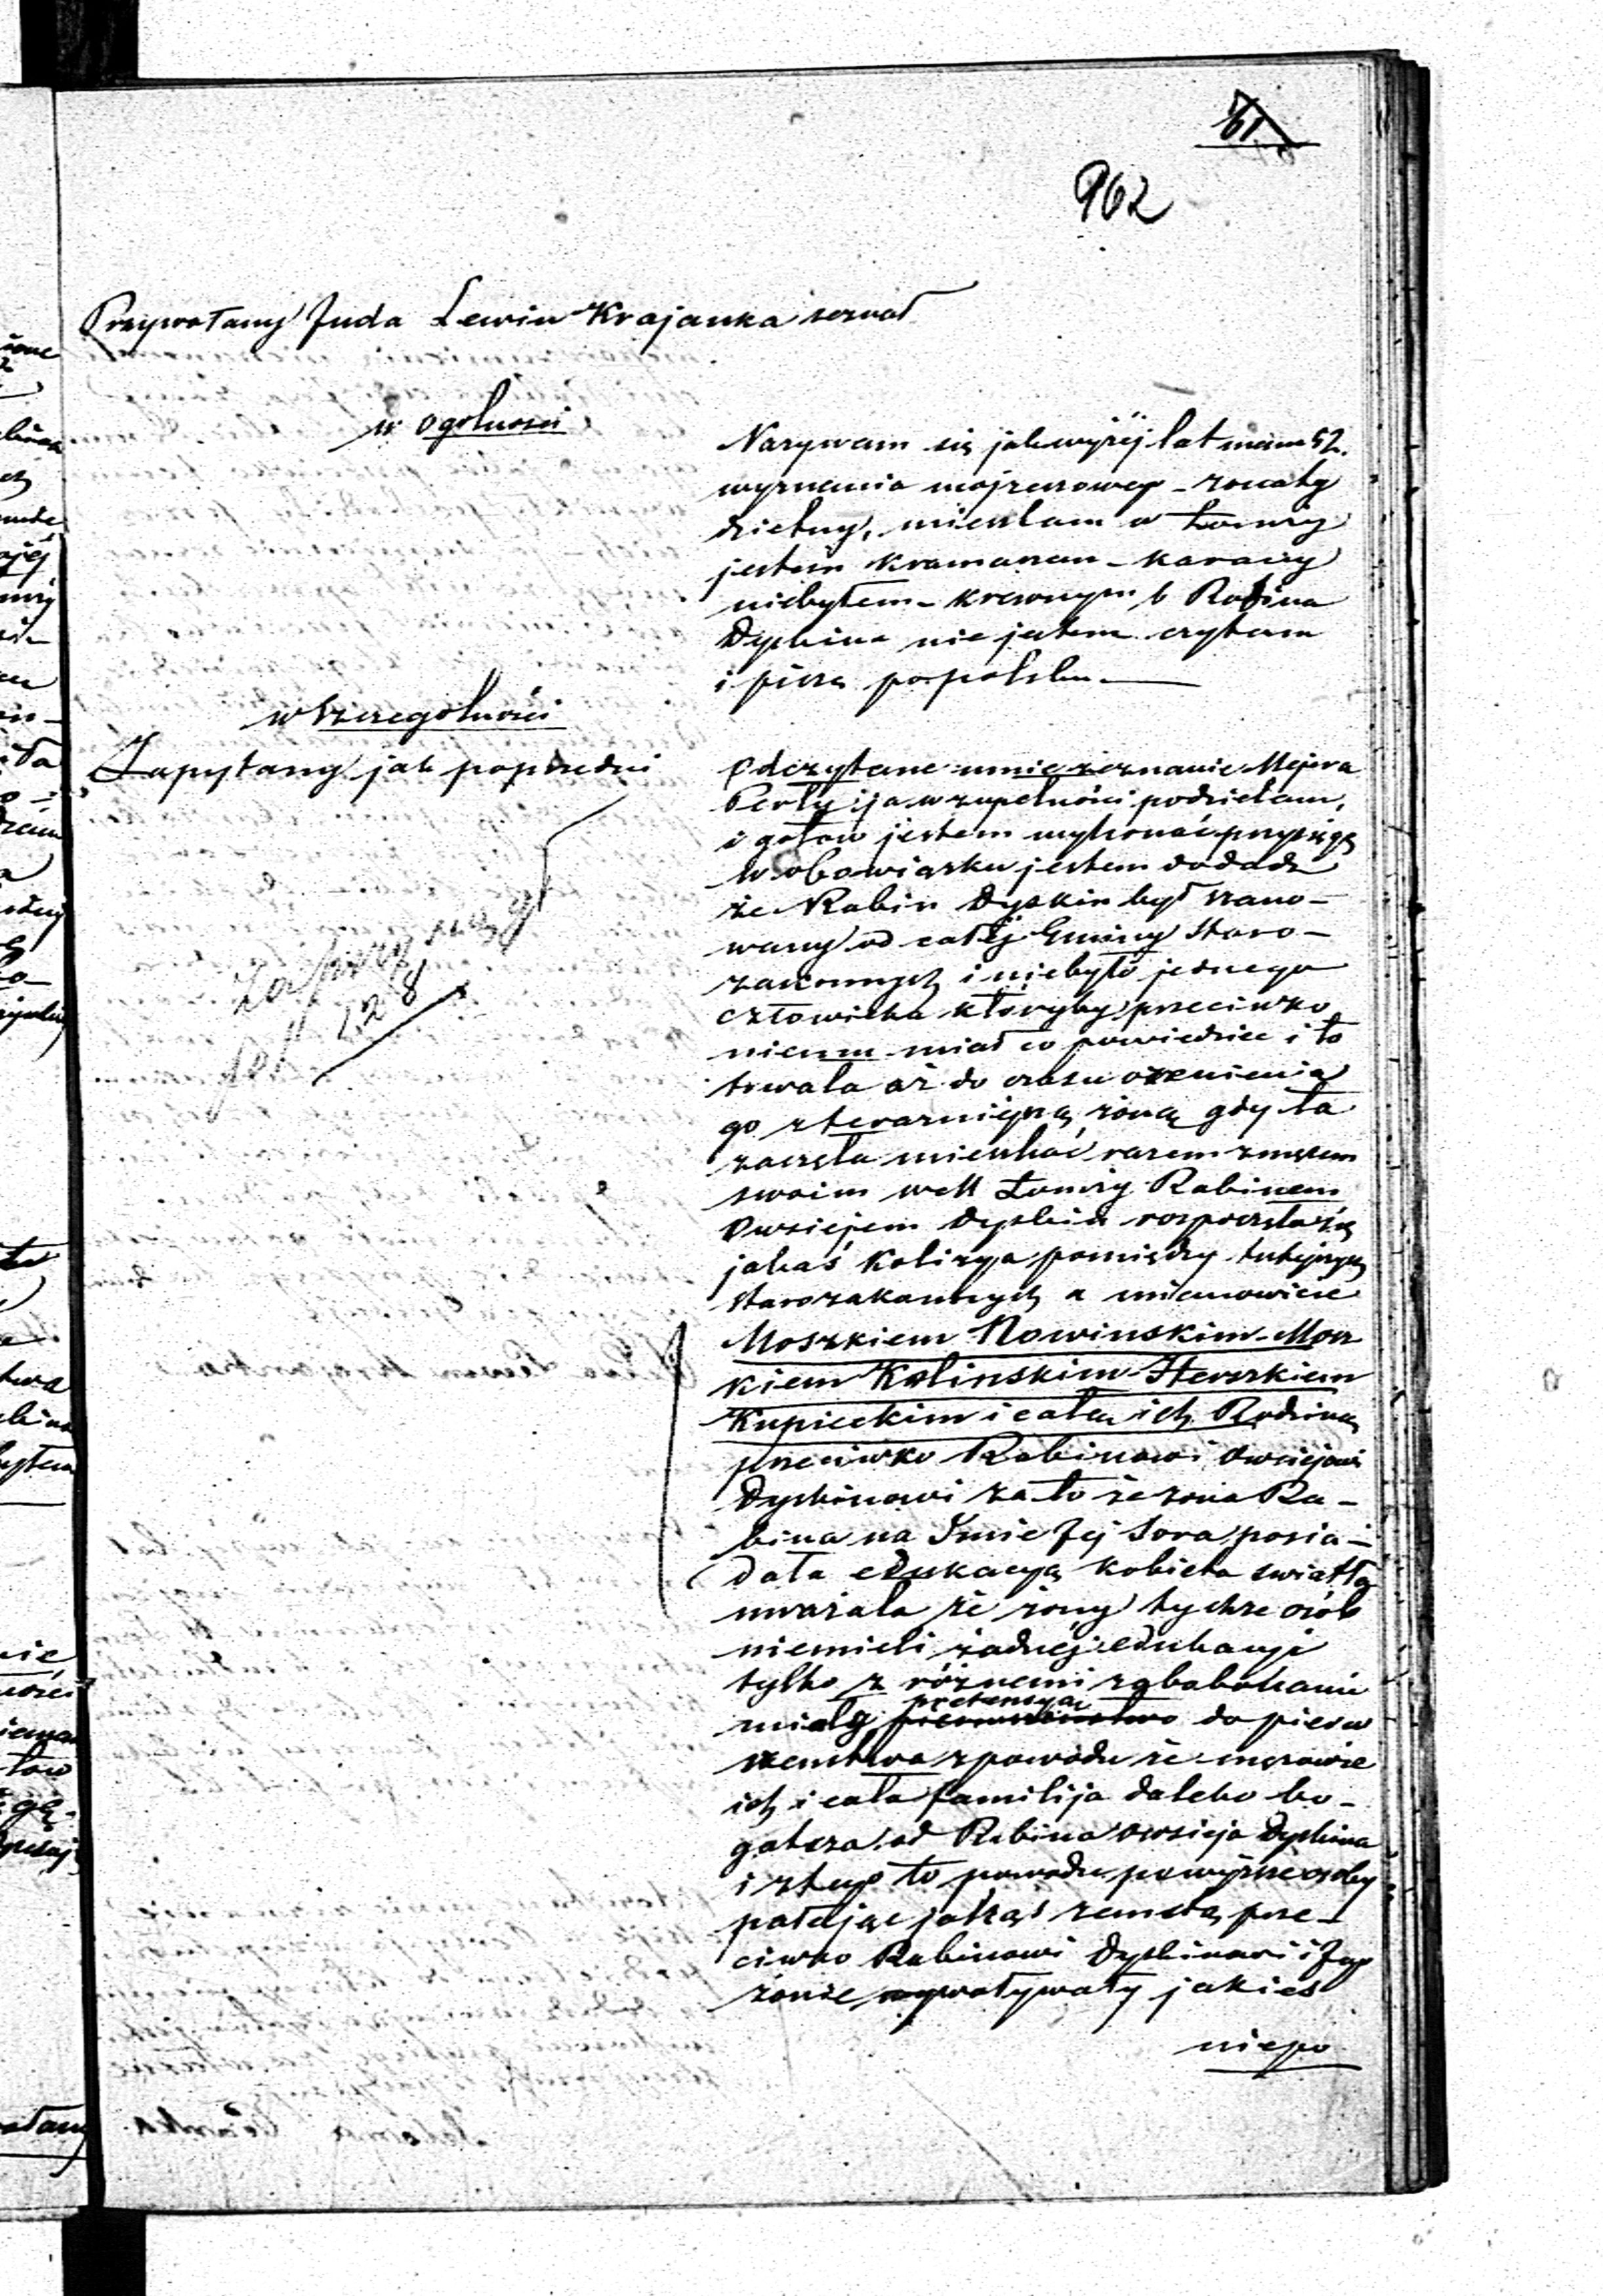 61
962
Przywołany Juda Lewin Krajanka zeznał
w ogolności
Nazywam się jak wyżéj lat mam 52.
wyznania mojżeszowego – żonaty
dzietny, mieszkam w Łomży
jestem Kramarzem – karany
niebyłem – krewnym b Rabina
Dyskina nie jestem czytam
i piszę po polsku. —
w Szczególności
Zapytany jak poprzedni
Odczytane mnie zeznanie Mejera
Perły i ja w zupełności podzielam,
i gotow jestem wykonać przysięgę
W obowiązku jestem dodadz
że Rabin Dyskin był szano–
wany od całéj Gminy Staro–
zakonnych i niebyło jednego
człowieka któryby przeciwko
niemu miał co powiedziec i to
trwała aż do czasu ożenienia
go z terazniejszą żoną gdy ta
zaczęła mieszkać razem z mężem
swoim w Łomży Rabinem
Owsiejem Dyskin rozpoczęła się
jakaś Kolizya pomiędzy tutejszych
starozakonnych a mianowicie
Moszkiem Nowinskim – Mosz
kiem Kolinskim – Herszkiem
Kupieckim i całą ich Rodziną
przeciwko Rabinowi Owsiejowi
Dyskinowi za to że żona Ra–
bina na Imie Jej Sora posia–
dała edukacyą kobieta swiatła
uważała że żony tychze osób
niemieli żadnéj edukacyi
tylko z różnemi zabobonami
pretensyą
miały pierwszeństwo do pierw
szenstwa z powodu że mężowie
ich i cała familija daleko bo–
gatsza od Rabina Owsieja Dyskina
i z tego to powodu powyższe osoby
pałając jakąś zemstą prze–
ciwko Rabinowi Dyskinowi i Jego
żonie wywoływały jakies
niepo